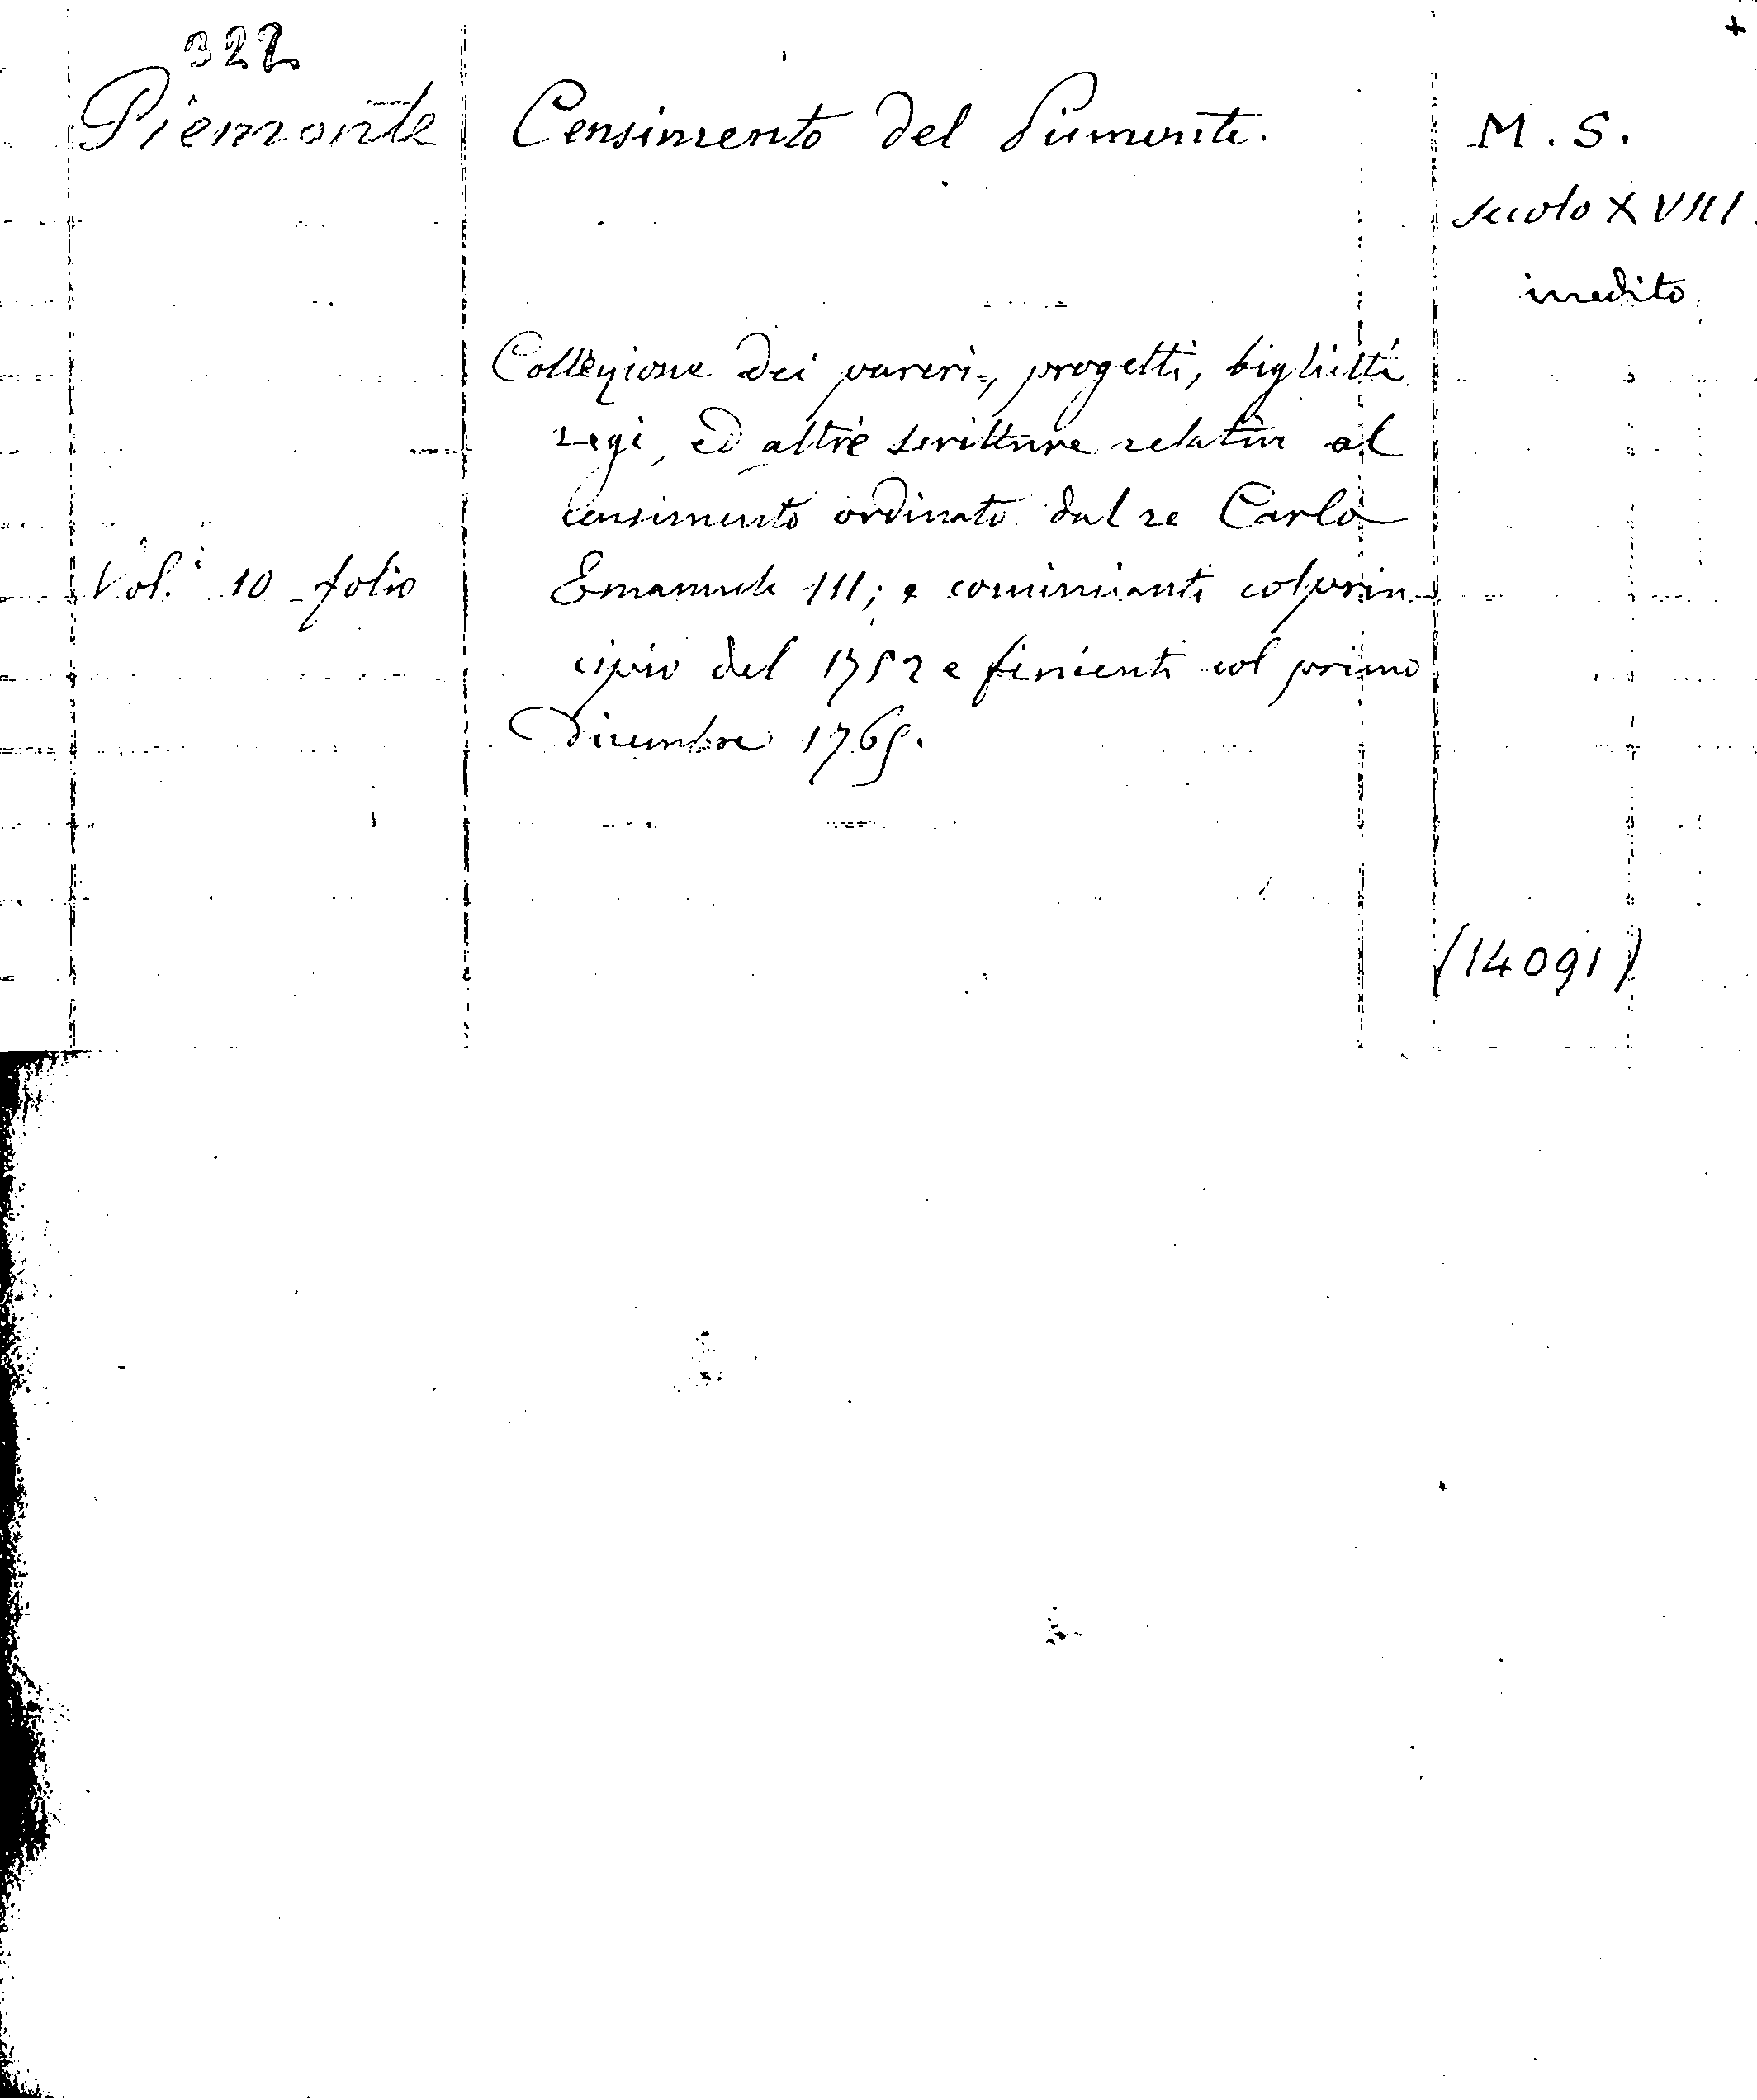 322
Piemonte
Censimento del Piemonte.
M. S.
secolo XVIII
inedito
Collezione dei pareri, progetti, biglietti
regi, ed altre scritture relative al
censimento ordinato dal re Carlo
Vol.i 10 folio
Emanuele III; e comincianti col prin
cipio del 1752 e finienti col primo
Dicembre 1765.
(14091)